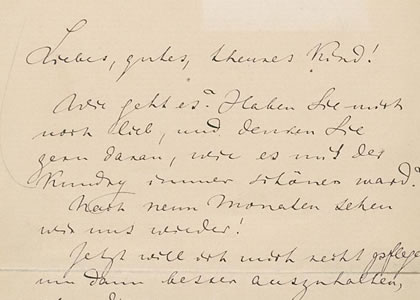 Liebes, gutes, theures Kind!
Wie geht es? Haben Sie mich
noch lieb, und denken Sie
gern daran, wie es mit der
Kundry immer schöner ward?
Nach neun Monaten sehen
wir uns wieder!
Jetzt will ich mich recht pflege
um dann besser auszuhalten,